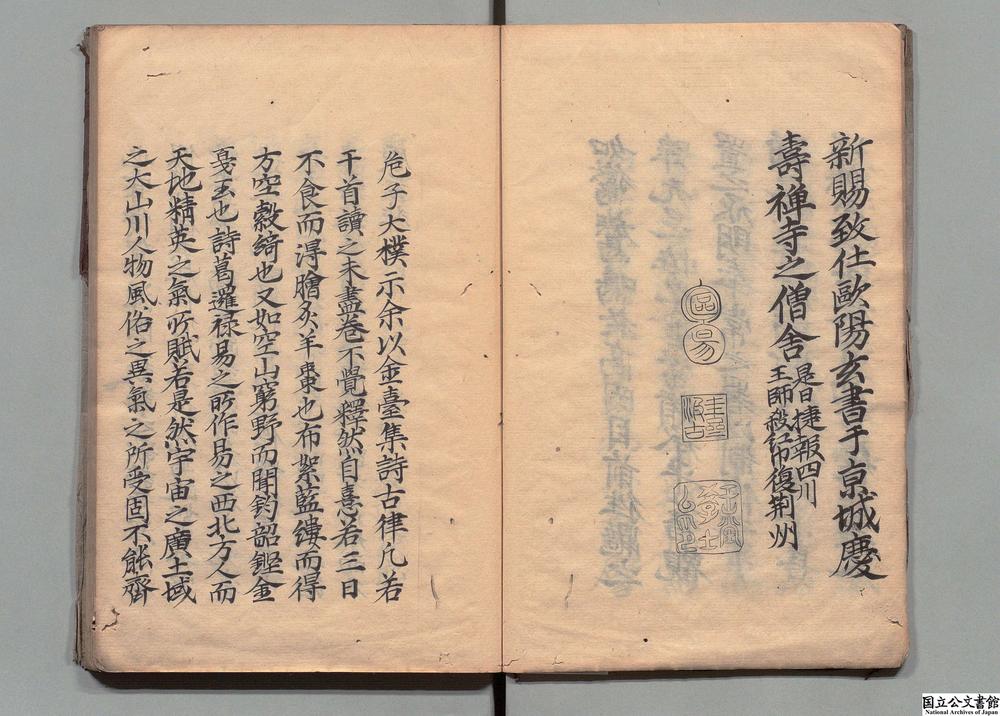 新賜致仕歐陽玄書于京城慶
壽禅寺之僧舎
是日捷報四川
王師殺紅巾復荆州
危子大樸示余以金臺集詩古律凢若
干首讀之未盡巻不覺釋然自憙若三日
不食而得膾炙羊棗也布絮藍縷而得
方空縠綺也又如空山窮野而聞鈞韶鏗金
戞玉也詩葛邏禄易之所作易之西北方人而
天地精英之氣所賦若是然宇宙之廣土域
之大山川人物風俗之異氣之所受固不能齊
国立公文書館
National Archives of Japan